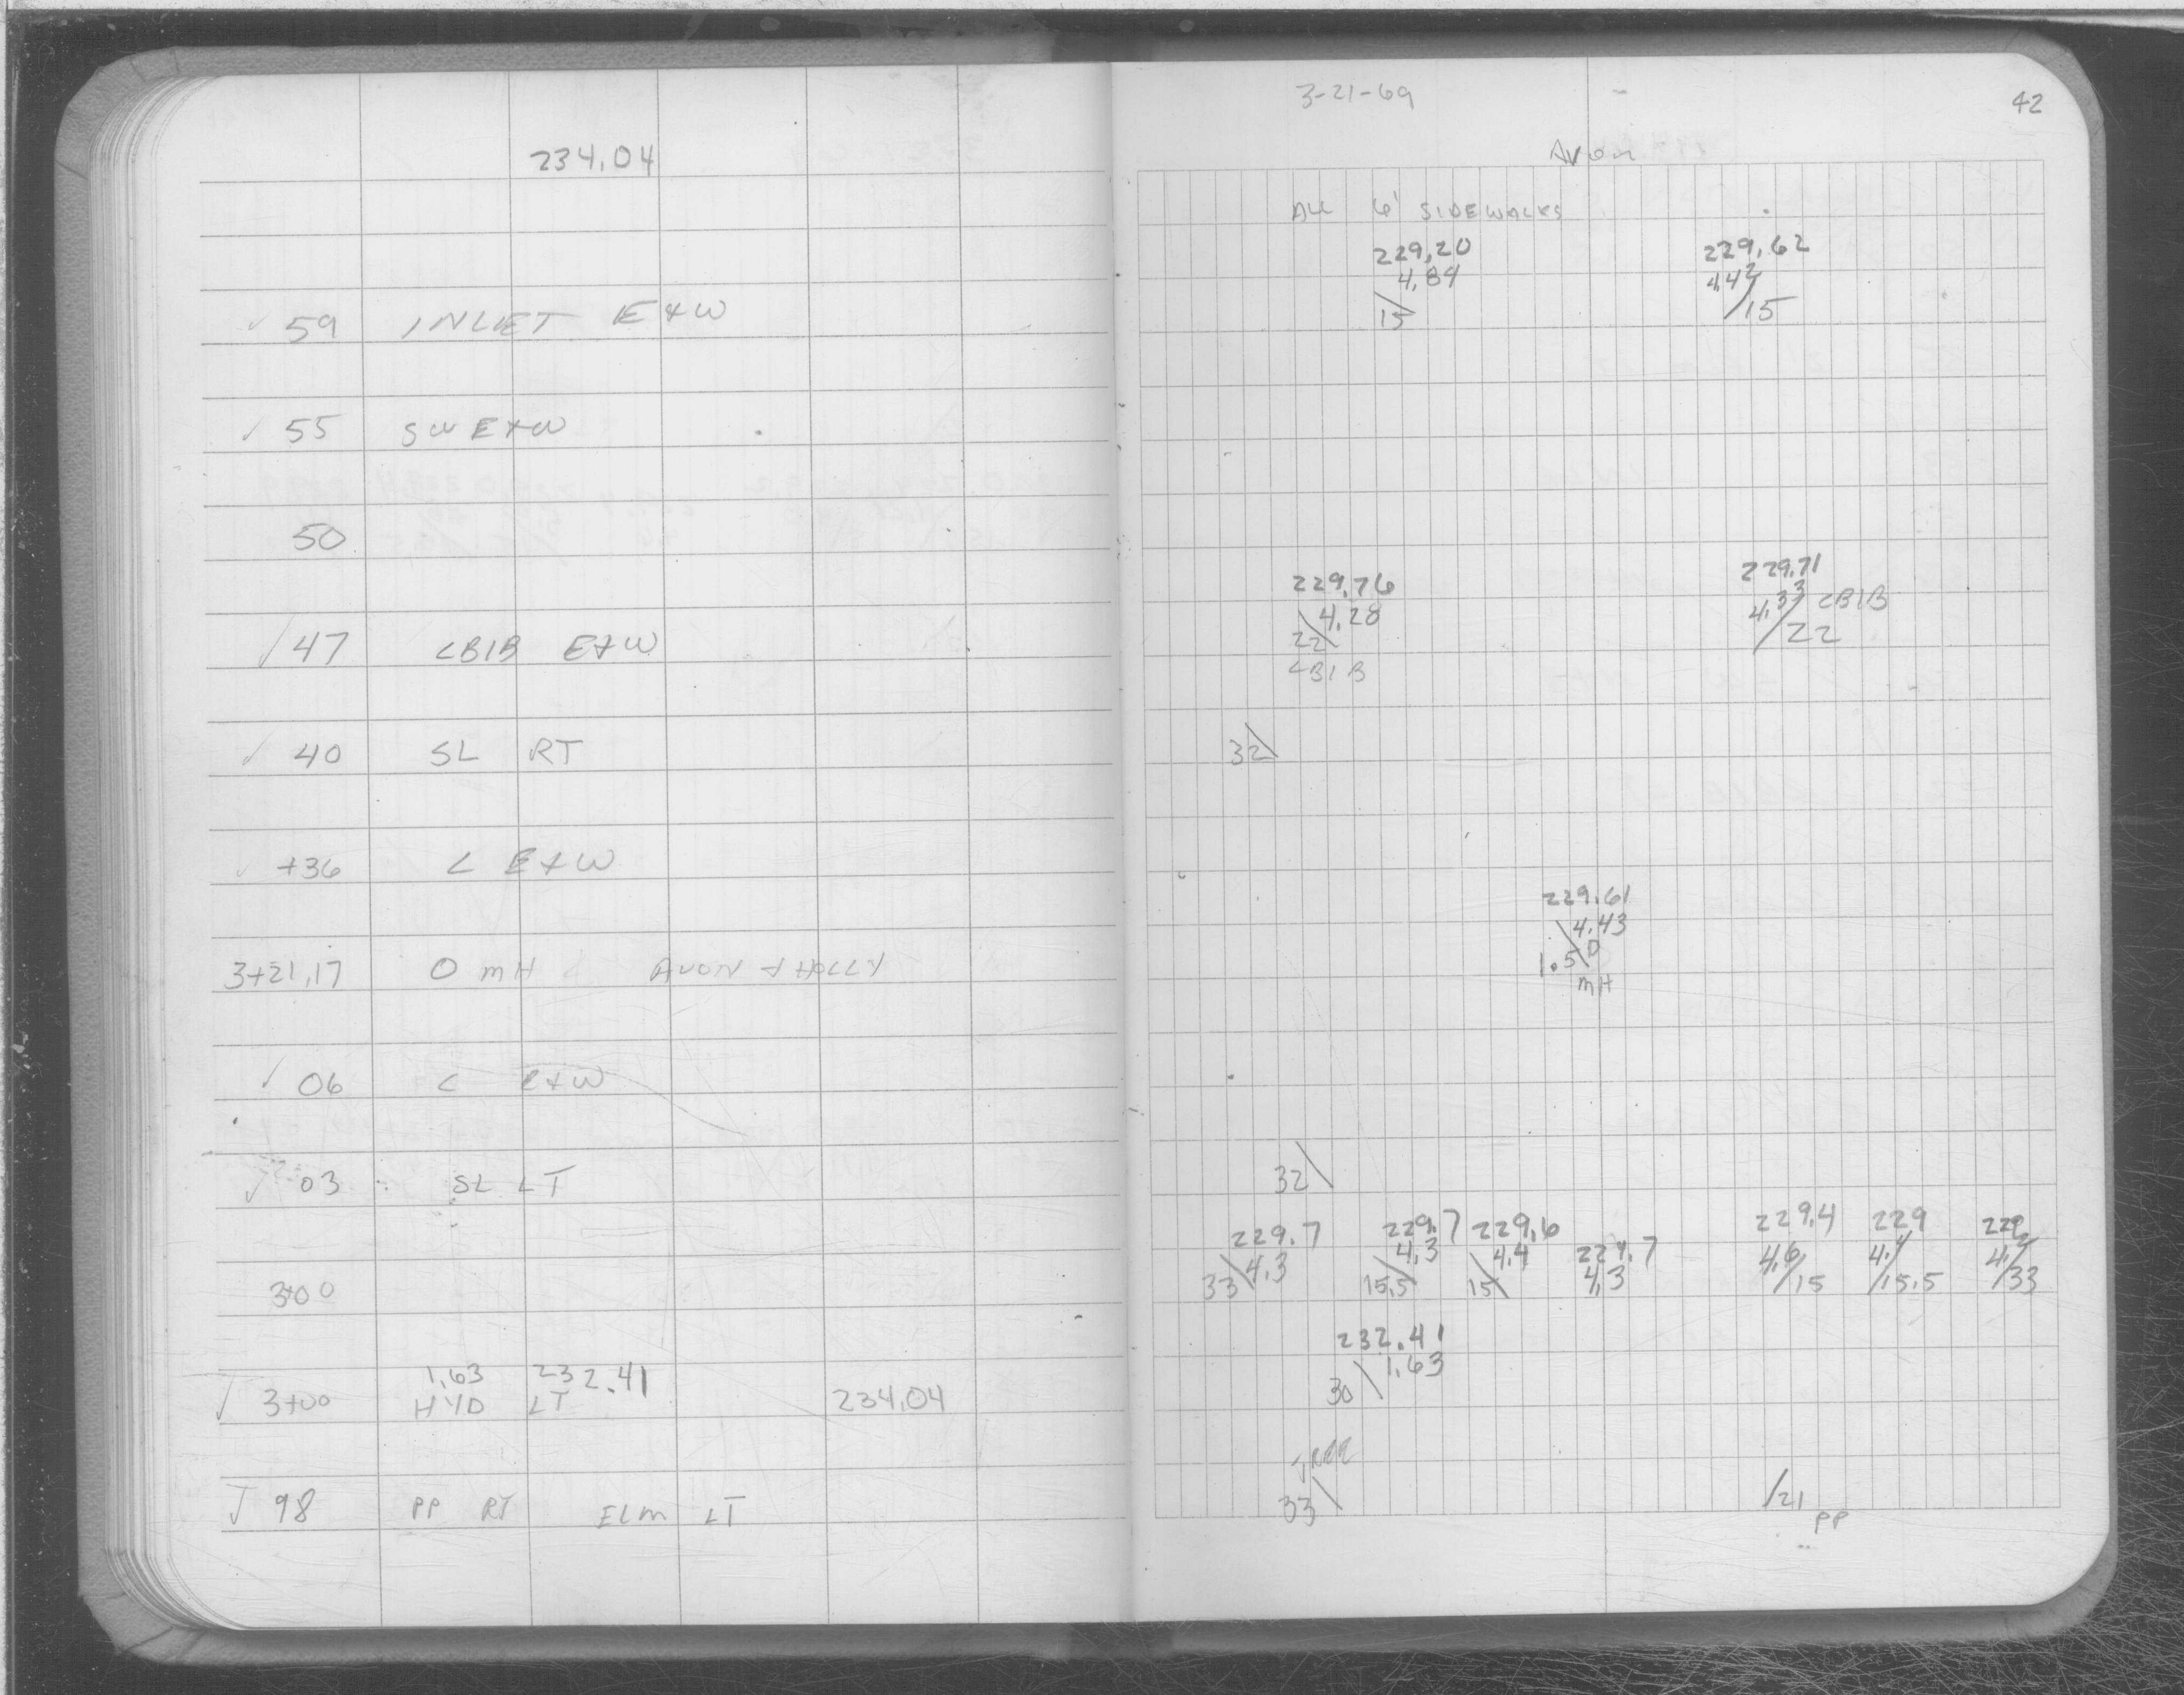 234.04
✓ 59 INLET E+W
✓ 55 SW E+W
50
✓ 47 CB1B E+W
✓ 40 SL RT
✓ +36 C E+W
3+21.17 O MH AVON + HOLLY
✓ 06 C E+W
✓ 03 SL LT
3+00
1.63 232.41
✓ 3+00 HYD LT 234.04
✓ 98 PP RT ELM LT
3-21-69
42
Avon
ALL 6' SIDEWALKS
229.20 229.62
4.84 4.42
15 15
229.76 229.71
4.28 4.33 CB1B
22 22
CB1B
32
229.61
4.43
1.50
MH
32
229.7 229.7 229.6 229.7 229.4 229 229
4.3 4.3 4.4 4.3 4.6 4.
33 15.5 15 15 15.5 33
232.41
1.63
30
TREE
33 21
PP